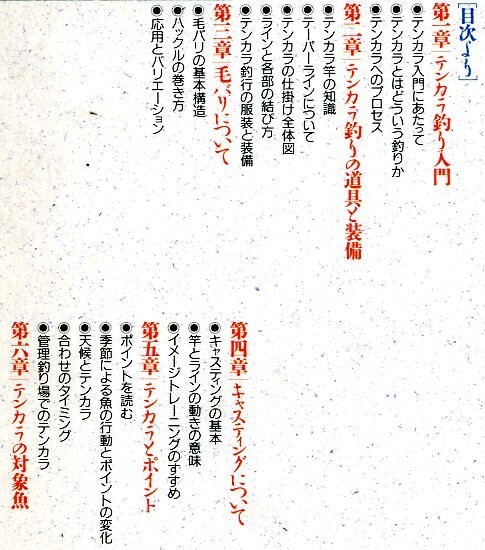 [目次より]
第一章 テンカラ釣り入門
●テンカラ入門にあたって
●テンカラとはどういう釣りか
●テンカラへのプロセス
第二章 テンカラ釣りの道具と装備
●テンカラ竿の知識
●テーパーラインについて
●テンカラの仕掛け全体図
●ラインと各部の結び方
●テンカラ釣行の服装と装備
第三章 毛バリについて
●毛バリの基本構造
●ハックルの巻き方
●応用とバリエーション
第四章 キャスティングについて
●キャスティングの基本
●竿とラインの動きの意味
●イメージトレーニングのすすめ
第五章 テンカラとポイント
●ポイントを読む
●季節による魚の行動とポイントの変化
●天候とテンカラ
●合わせのタイミング
●管理釣り場でのテンカラ
第六章 テンカラの対象魚